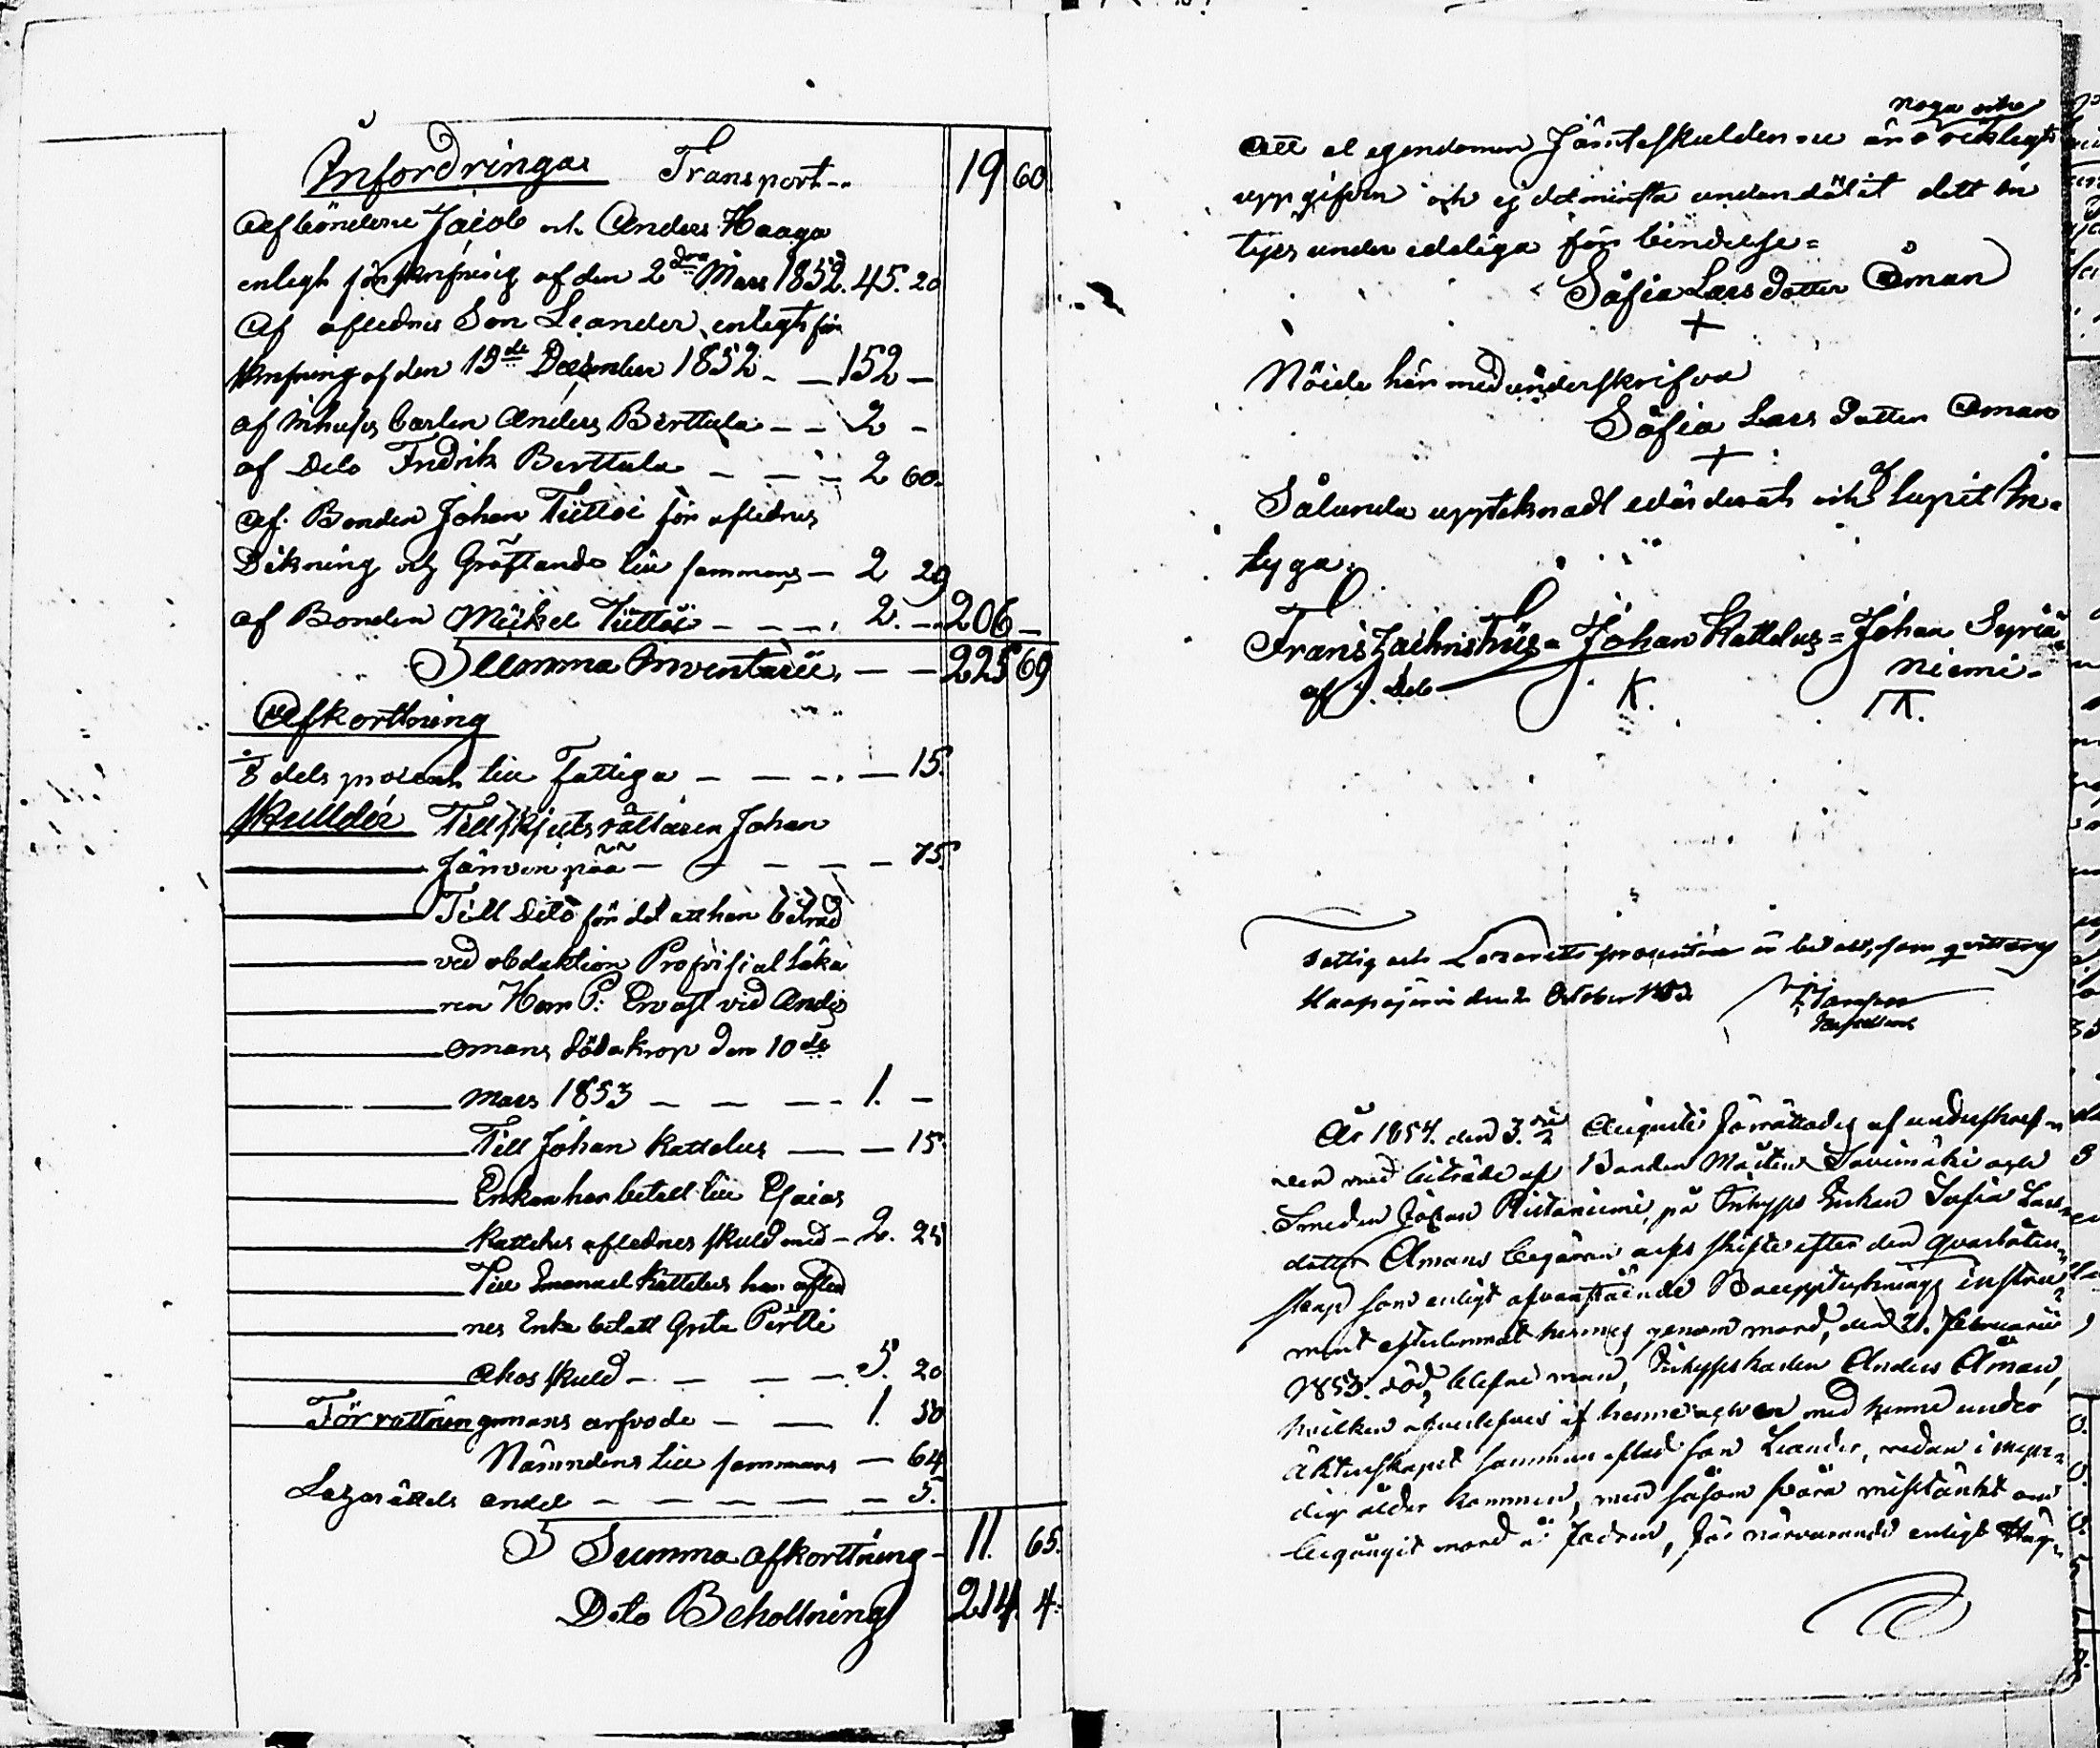 Infordringar Transport -- 19 60
Af bönderne Jacob och Anders Haaga
enligt förskrifning af den 2dra Mars 1852. 45. 20
Af aflednes Son Leander, enligt för
skrifning af den 15de December 1852 - - 152 -
af Inhyses karlen Anders Berttula - - 2 -
af Dito Fredrik Berttula - - - 2 60.
Af Bonden Johan Tiittoi för aflednes
Dikning och Gräftande till sammans - 2 29
af Bonden Mickel Tiittoi - - - . 2. - 206 -
Summa Inventarii, - - 225 69
Afkorttning
1/8 dels procent till Fattiga - - - . - 15.
Skullder Till Skjutsrättaren Johan
Järvenpää - - - - - 75.
Till Dito för det att han biträd
ved obduktion Profvisial Läka
ren Herr P: Ervast vid Anders
omans döda krop den 10de
Mars 1853 - - - - 1. -
Till Johan Kattelus - - 15.
Enkan har betalt till Esaias
Kattelus aflednes skuld med - 2. 25
Till Emanuel Kattelus har afled
nes Enka betalt Greta Pertti
ahos skuld - - - - 5. 20
Förrättningsmans arfvode - - 1. 50
Nämndens till sammans - 64
Lazarättets andel - - - - - 5.
Summa afkorttning - 11. 65.
Dito Beholtning 214. 4.
noga och
Att al egendomen Jämte skulden nu är ricktigt
uppgifven och ej det minsta undandålit dett in
tyer under edeliga för bindelse =
Sofia Lars dotter Öman
+
Nöida här med underskrifva
Sofia Lars dotter Oman
+
Sålunda uppteknadt värderat och af lupit In-
tyga.
Frans Johan Kattelus = Johan Syriä
niemi -
af J. Dito K. K.
Fattig och Lazaretts procenten är betalt, som qvitteras
Haapajärvi den 2 October 1853
År 1854. den 3.die Augusti förrättades af underskref-
ven med biträde af Bonden Mårten Savimäki och
Smeden Johan Ristaniemi, på Inhyses Enkan Sofia Lars-
dotter Ömans begäran arfs skifte efter den qvarlåten-
skap som enligt ofvanstående Bouppteknings instru-
ment efterlemnat hennes genom mord, den 21. februarii
1853. död blefne man, Inhyseskarlen Anders Öman,
hvilken af henne och en med henne under
äktenskapet sammanaflad son Leander, redan i myn-
dig ålder kommen, men såsom svårt misstänkt om
begånget mord å fadren, för närvarande enligt Håg-